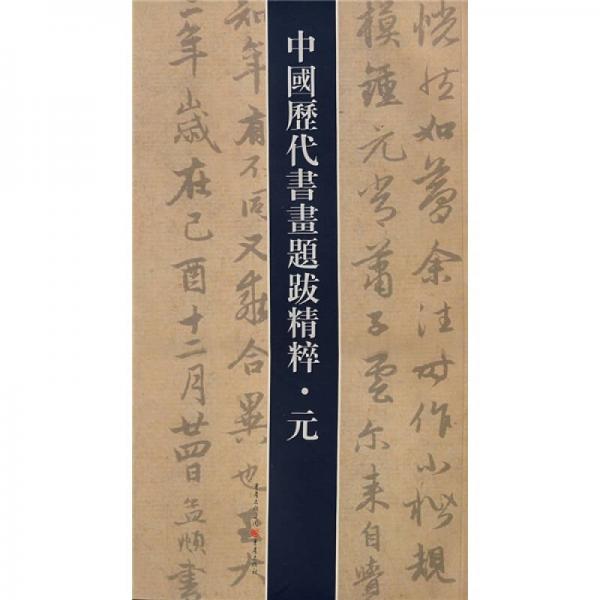 恍然如夢余往時作小楷規
模鍾元常蕭子雲尓来自𫍯
中國歷代書畫題跋精粹·元
知年有不同又乖合異也王大
二年歲在己酉十二月廿四日孟頫書